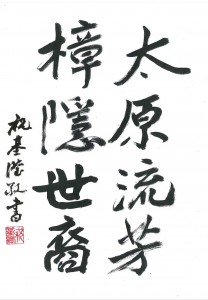 太原流芳
樟隱世裔